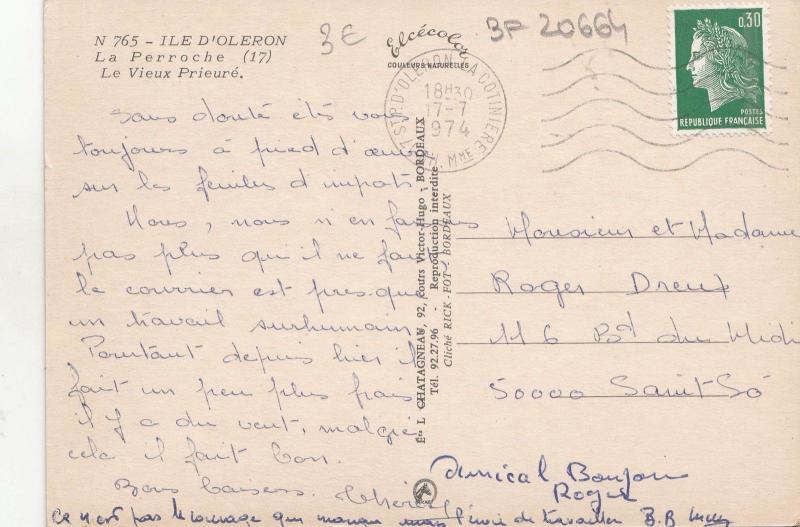 N 765 - ILE D'OLERON
La Perroche (17)
Le Vieux Prieuré.
3€
BF 20664
Elcécolor
COULEURS NATURELLES
0,30
POSTES
REPUBLIQUE FRANÇAISE
ST P. D'OLERON LA COTINIERE
18H30
17-7
1974
CH MME
Sans doute êtes vous
toujours à pied d'œuvre
sur les feuilles d'impots.
Nous, nous n'en faisons
pas plus qu'il ne faut
le courrier est presque
un travail surhumain
Pourtant depuis hier il
fait un peu plus frais
il y a du vent, malgré
cela il fait bon.
Bons baisers.
Ets L. CHATAGNEAU, 92, cours Victor-Hugo - BORDEAUX
Tél. 92.27.96 - Reproduction interdite
Cliché RICK-FOT - BORDEAUX
Monsieur et Madame
Roger Dreux
116 Bd du Midi
50000 Saint-Lô
Amical Bonjour
Roger
Ce n'est pas le courage qui manque mais l'envie de travailler B.B